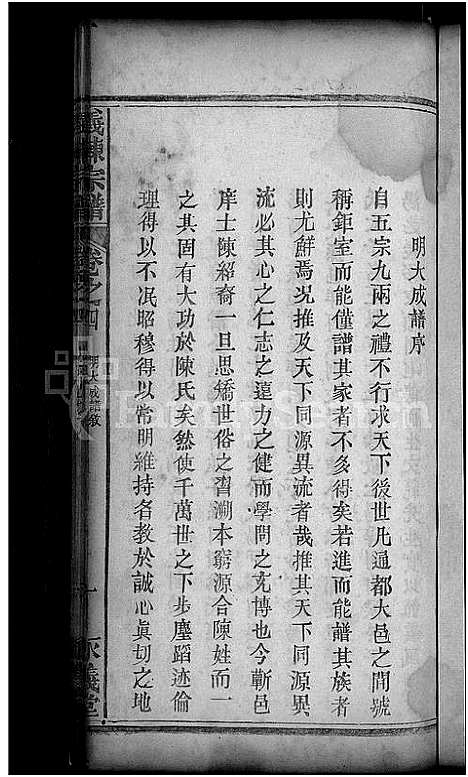 明大成譜序
自五宗九兩之禮不行求天下後世凡通都大邑之間號
稱鉅室而能僅譜其家者不多得矣若進而能譜其族者
則尤鮮焉况推及天下同源異流者哉推其天下同源異
流必其心之仁志之遠力之健而學問之充博也今蘄邑
庠士陳紹裔一旦思矯世俗之習溯本窮源合陳姓而一
之其固有大功於陳氏矣然使千萬世之下步塵蹈迹倫
理得以不泯昭穆得以常明維持名教於誠心眞切之地
義陳宗譜
卷之四
明大成譜敘
義堂
FamilySearch